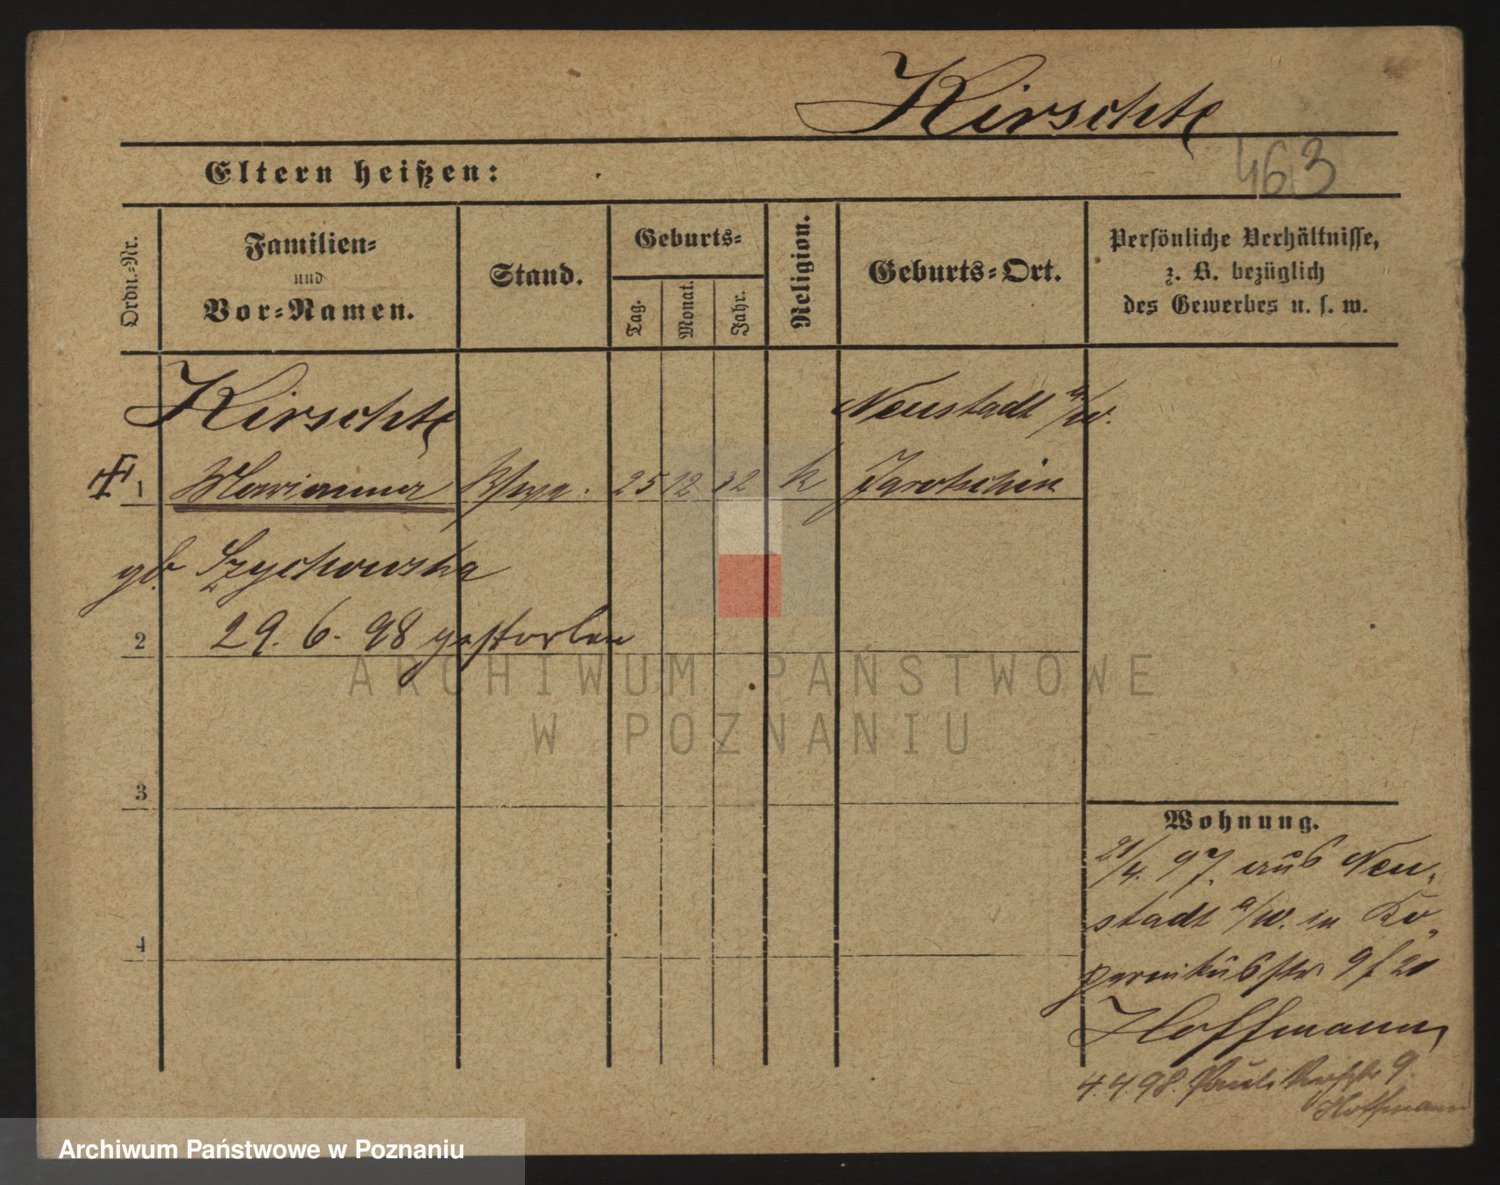 Kirschte
463
Eltern heißen:
Ordn.-Nr.
Familien-
und
Vor-Namen.
Stand.
Geburts-
Tag.
Monat.
Jahr.
Religion.
Geburts-Ort.
Persönliche Verhältnisse,
z. B. bezüglich
des Gewerbes u. s. w.
Kirschte
Neustadt a/W.
1 Marianna 25 12 32 k Jarotschin
gb. Szychowska
2 29. 6. 98 gestorben
ARCHIWUM PAŃSTWOWE
W POZNANIU
3
Wohnung.
21/4. 97. aus Neu-
stadt a/W. in Ko-
4
pernikusstr 9 f 20
Hoffmann
4.4.98. Paulikirchstr 9.
Hoffmann
Archiwum Państwowe w Poznaniu